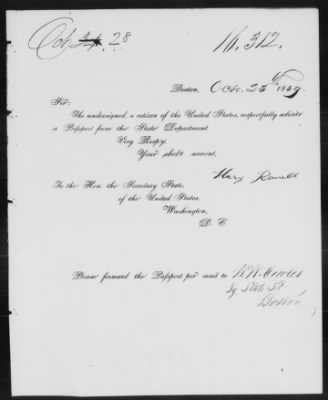 Oct 28
16.312.
Boston, Octo. 25th 1869
Sir:
The undersigned, a citizen of the United States, respectfully solicits
a Passport from the State Department
Very Respy,
Your obdt servant,
Mary
To the Hon. the Secretary State,
of the United States,
Washington,
D. C.
Please forward the Passport per mail to
State St
Boston